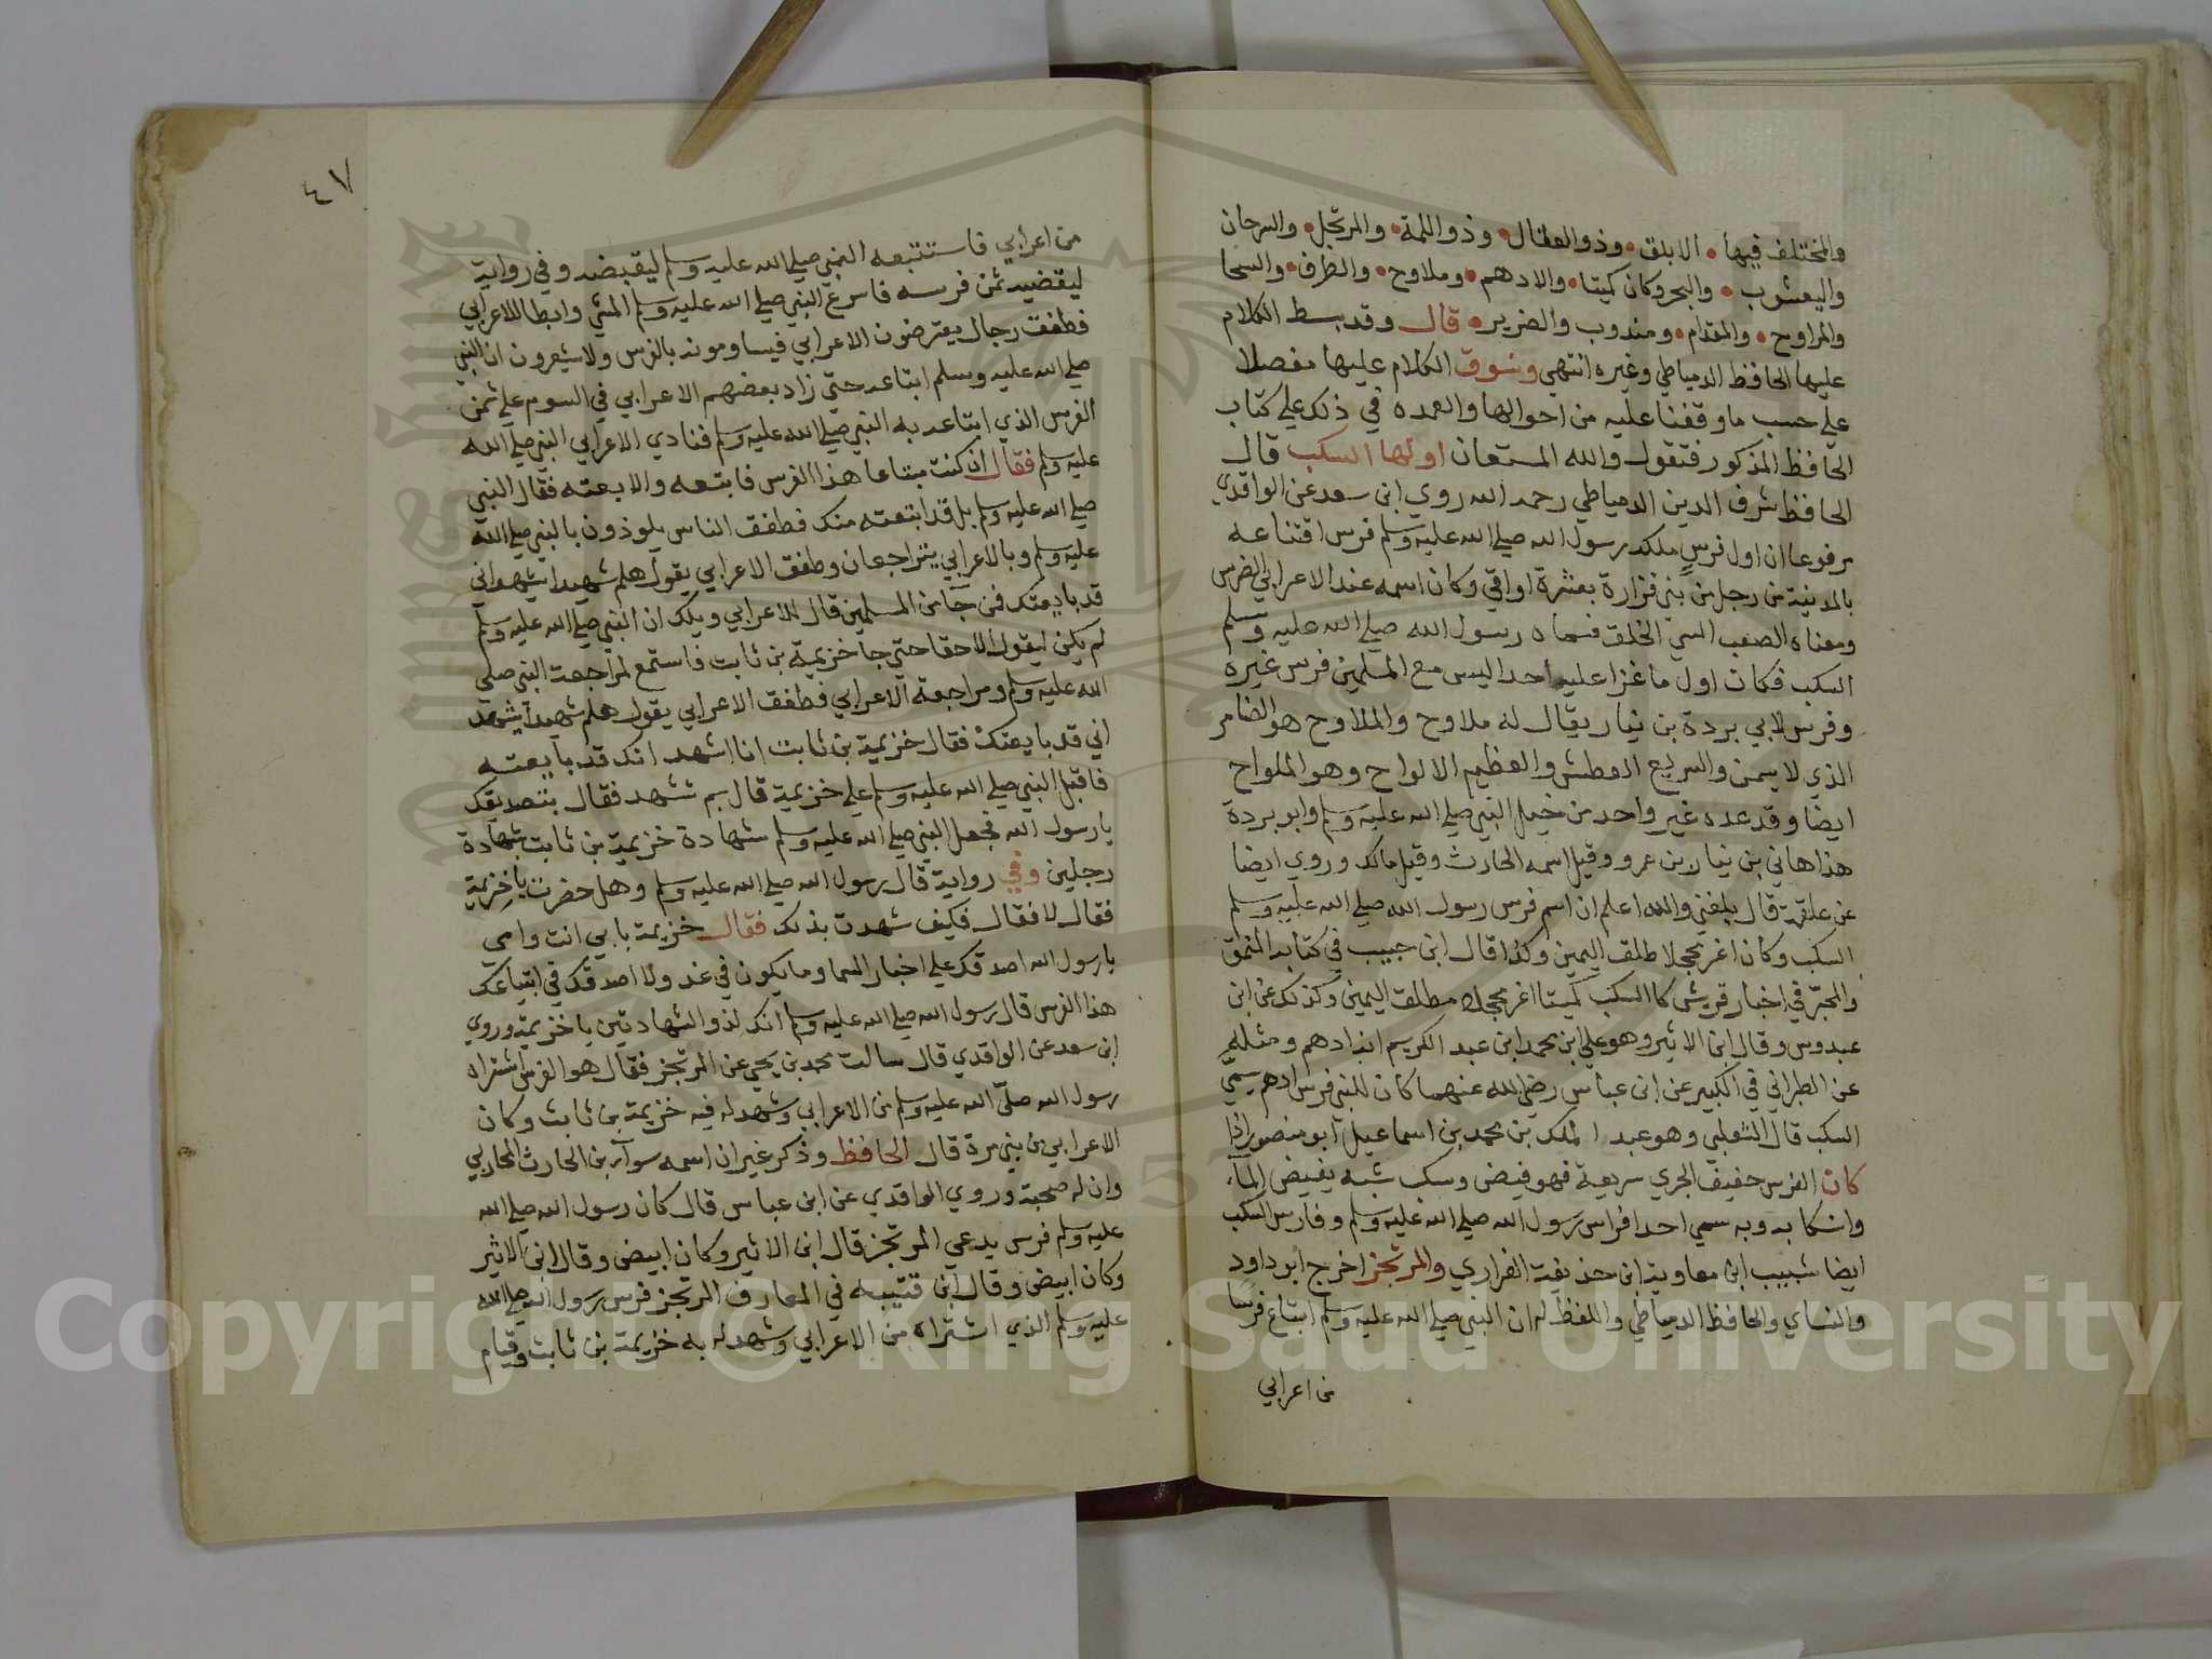 والمختلف فيها • الابلق • وذو العقال • وذو اللمة • والمرتجل • والسرحان
واليعسوب • والبحر وكان كميتا • والادهم • وملاوح • والطرف • والسحا
والمراوح • والمقدام • ومندوب والضرير • قال وقد بسط الكلام
عليها الحافظ الدمياطي وغيره انتهي ونسوق الكلام عليها مفصلا
علي حسب ما وقفنا عليه من احوالها والعمده في ذلك علي كتاب
الحافظ المذكور فنقول والله المستعان اولها السكب قال
الحافظ شرف الدين الدمياطي رحمه الله روي ابن سعد عن الواقدي
مرفوعا ان اول فرس ملكه رسول الله صلي الله عليه وسلم فرس اقتناعه
بالمدينة من رجل من بني فزارة بعشرة اواقي وكان اسمه عند الاعرابي الضرس
ومعناه الصعب السي الخلق فسماه رسول الله صلي الله عليه وسلم
السكب فكان اول ما غزا عليه احدا ليس مع المسلمين فرس غيره
وفرس لابي بردة بن نيار يقال له ملاوح والملاوح هو الضامر
الذي لا يسمن والسريع العطش والعظيم الالواح وهو الملواح
ايضا وقد عده غير واحد من خيل النبي صلي الله عليه وسلم وابو بردة
هذا هاني بن نيار بن عمرو وقيل اسمه الحارث وقيل مالك وروي ايضا
عن علقمة قال بلغني والله اعلم ان اسم فرس رسول الله صلي الله عليه وسلم
السكب وكان اغر محجلا طلق اليمين وكذا قال ابن حبيب في كتابه المنمق
والمحبر في اخبار قريش كا السكب كميتا اغر محجلا مطلق اليمين وكذلك عن ابن
عبدوس وقال ابن الاثير وهو علي ابن محمد ابن عبد الكريم انه ادهم ومثله
عن الطبراني في الكبير عن ابن عباس رضي الله عنهما كان للنبي فرس ادهم يسمي
السكب قال الثعلبي وهو عبد الملك بن محمد بن اسماعيل ابو منصور اذا
كان الفرس خفيف الجري سريعة فهو فيض وسكب شبه بفيض الماء
وانسكابه وبه سمي احد افراس رسول الله صلي الله عليه وسلم وفارس السكب
ايضا شبيب ابن معاوية ابن حذيفة الفزاري والمرتجز اخرج ابو داود
والنساي والحافظ الدمياطي واللفظ له ان النبي صلي الله عليه وسلم ابتاع فرسا
من اعرابي
٤٧
من اعرابي فاستتبعه النبي صلي الله عليه وسلم ليقبضه وفي رواية
ليقضيه ثمن فرسه فاسرع النبي صلي الله عليه وسلم المشي وابطا الاعرابي
فطفق رجال يعترضون الاعرابي فيساومونه بالفرس ولا يشعرون ان النبي
صلي الله عليه وسلم ابتاعه حتي زاد بعضهم الاعرابي في السوم علي ثمن
الفرس الذي ابتاعه به النبي صلي الله عليه وسلم فنادي الاعرابي النبي صلي الله
عليه وسلم فقال ان كنت مبتاعا هذا الفرس فابتعه والا بعته فقال النبي
صلي الله عليه وسلم بل قد ابتعته منك فطفق الناس يلوذون بالنبي صلي الله
عليه وسلم وبالاعرابي يتراجعان وطفق الاعرابي يقول هلم شهيدا يشهد اني
قد بايعتك فمن جآ من المسلمين قال للاعرابي ويلك ان النبي صلي الله عليه وسلم
لم يكن ليقول الا حقا حتي جا خزيمة بن ثابت فاستمع لمراجعت النبي صلي
الله عليه وسلم ومراجعة الاعرابي فطفق الاعرابي يقول هلم شهيدا يشهد
اني قد بايعتك فقال خزيمة بن ثابت انا اشهد انك قد بايعته
فاقبل النبي صلي الله عليه وسلم علي خزيمة قال بم تشهد فقال بتصديقك
يا رسول الله فجعل النبي صلي الله عليه وسلم شهادة خزيمة بن ثابت بشهادة
رجلين وفي رواية قال رسول الله صلي الله عليه وسلم وهل حضرت يا خزيمة
فقال لا فقال فكيف شهدت بذلك فقال خزيمة بابي انت وامي
يا رسول الله اصدقك علي اخبار السما وما يكون في غد ولا اصدقك في ابتياعك
هذا الفرس قال رسول الله صلي الله عليه وسلم انك لذو الشهادتين يا خزيمة وروي
ابن سعد عن الواقدي قال سالت محمد بن يحيي عن المرتجز فقال هو الفرس اشتراه
رسول الله صلي الله عليه وسلم من الاعرابي وشهد له فيه خزيمة بن ثابت وكان
الاعرابي من بني مرة قال الحافظ وذكر غير ان اسمه سوآر بن الحارث المحاربي
وان له صحبة وروي الواقدي عن ابن عباس قال كان رسول الله صلي الله
عليه وسلم فرس يدعي المرتجز قال ابن الاثير وكان ابيض وقال ابن الاثير
وكان ابيض وقال ابن قتيبه في المعارف المرتجز فرس رسول الله صلي الله
عليه وسلم الذي اشتراه من الاعرابي وشهد له به خزيمة بن ثابت وقيام
Copyright © King Saud University